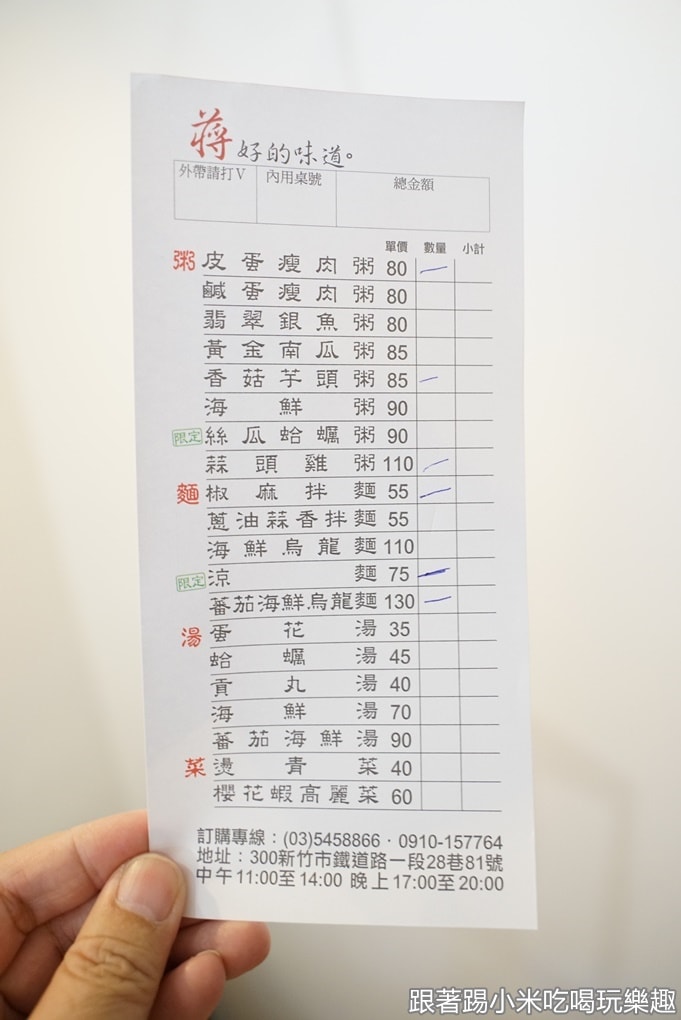 蔣 好的味道。
外帶請打V 內用桌號 總金額
單價 數量 小計
粥 皮蛋瘦肉粥 80 一
鹹蛋瘦肉粥 80
翡翠銀魚粥 80
黃金南瓜粥 85
香菇芋頭粥 85 一
海鮮粥 90
限定 絲瓜蛤蠣粥 90
蒜頭雞粥 110 一
麵 椒麻拌麵 55 一
蔥油蒜香拌麵 55
海鮮烏龍麵 110
限定 涼麵 75 一
蕃茄海鮮烏龍麵 130 一
湯 蛋花湯 35
蛤蠣湯 45
貢丸湯 40
海鮮湯 70
蕃茄海鮮湯 90
菜 燙青菜 40
櫻花蝦高麗菜 60
訂購專線：(03)5458866·0910-157764
地址：300新竹市鐵道路一段28巷81號
中午11:00至14:00 晚上17:00至20:00
跟著踢小米吃喝玩樂趣